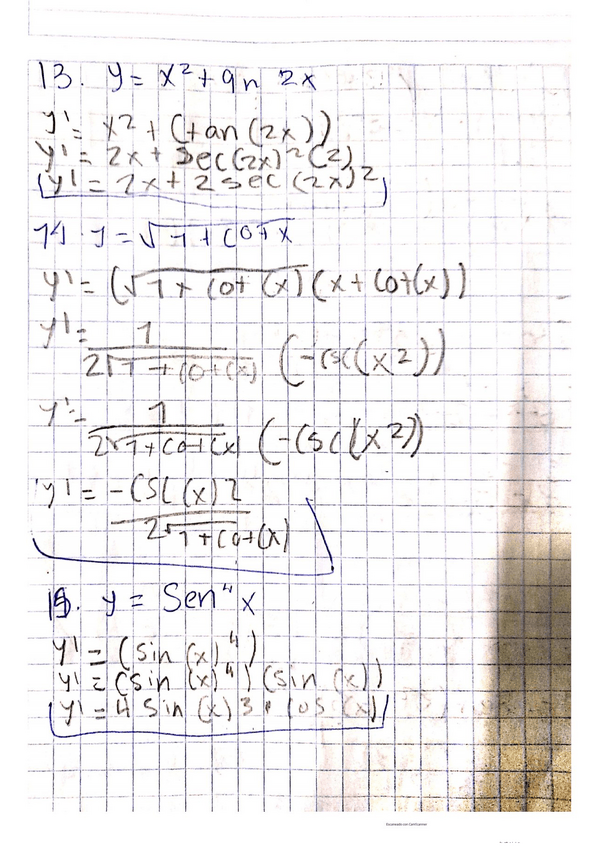 13. y = x² + an 2x
y' = x² + (tan(2x))
y' = 2x + sec(2x)²(2)
y' = 2x + 2 sec(2x)²
14. y = √1+cotx
y' = (√1+cot(x)(x+cot(x))
y' = 1/2√1+cot(x) (-csc(x2))
y' = 1/2√1+cot(x) (-csc(x2))
y' = -csc(x)2/2√1+cot(x)
15. y = Sen⁴x
y' = (sin(x)⁴)
y' = (sin(x)⁴)(sin(x))
y' = 4 sin(x)3 · cos(x)
Escaneado con CamScanner